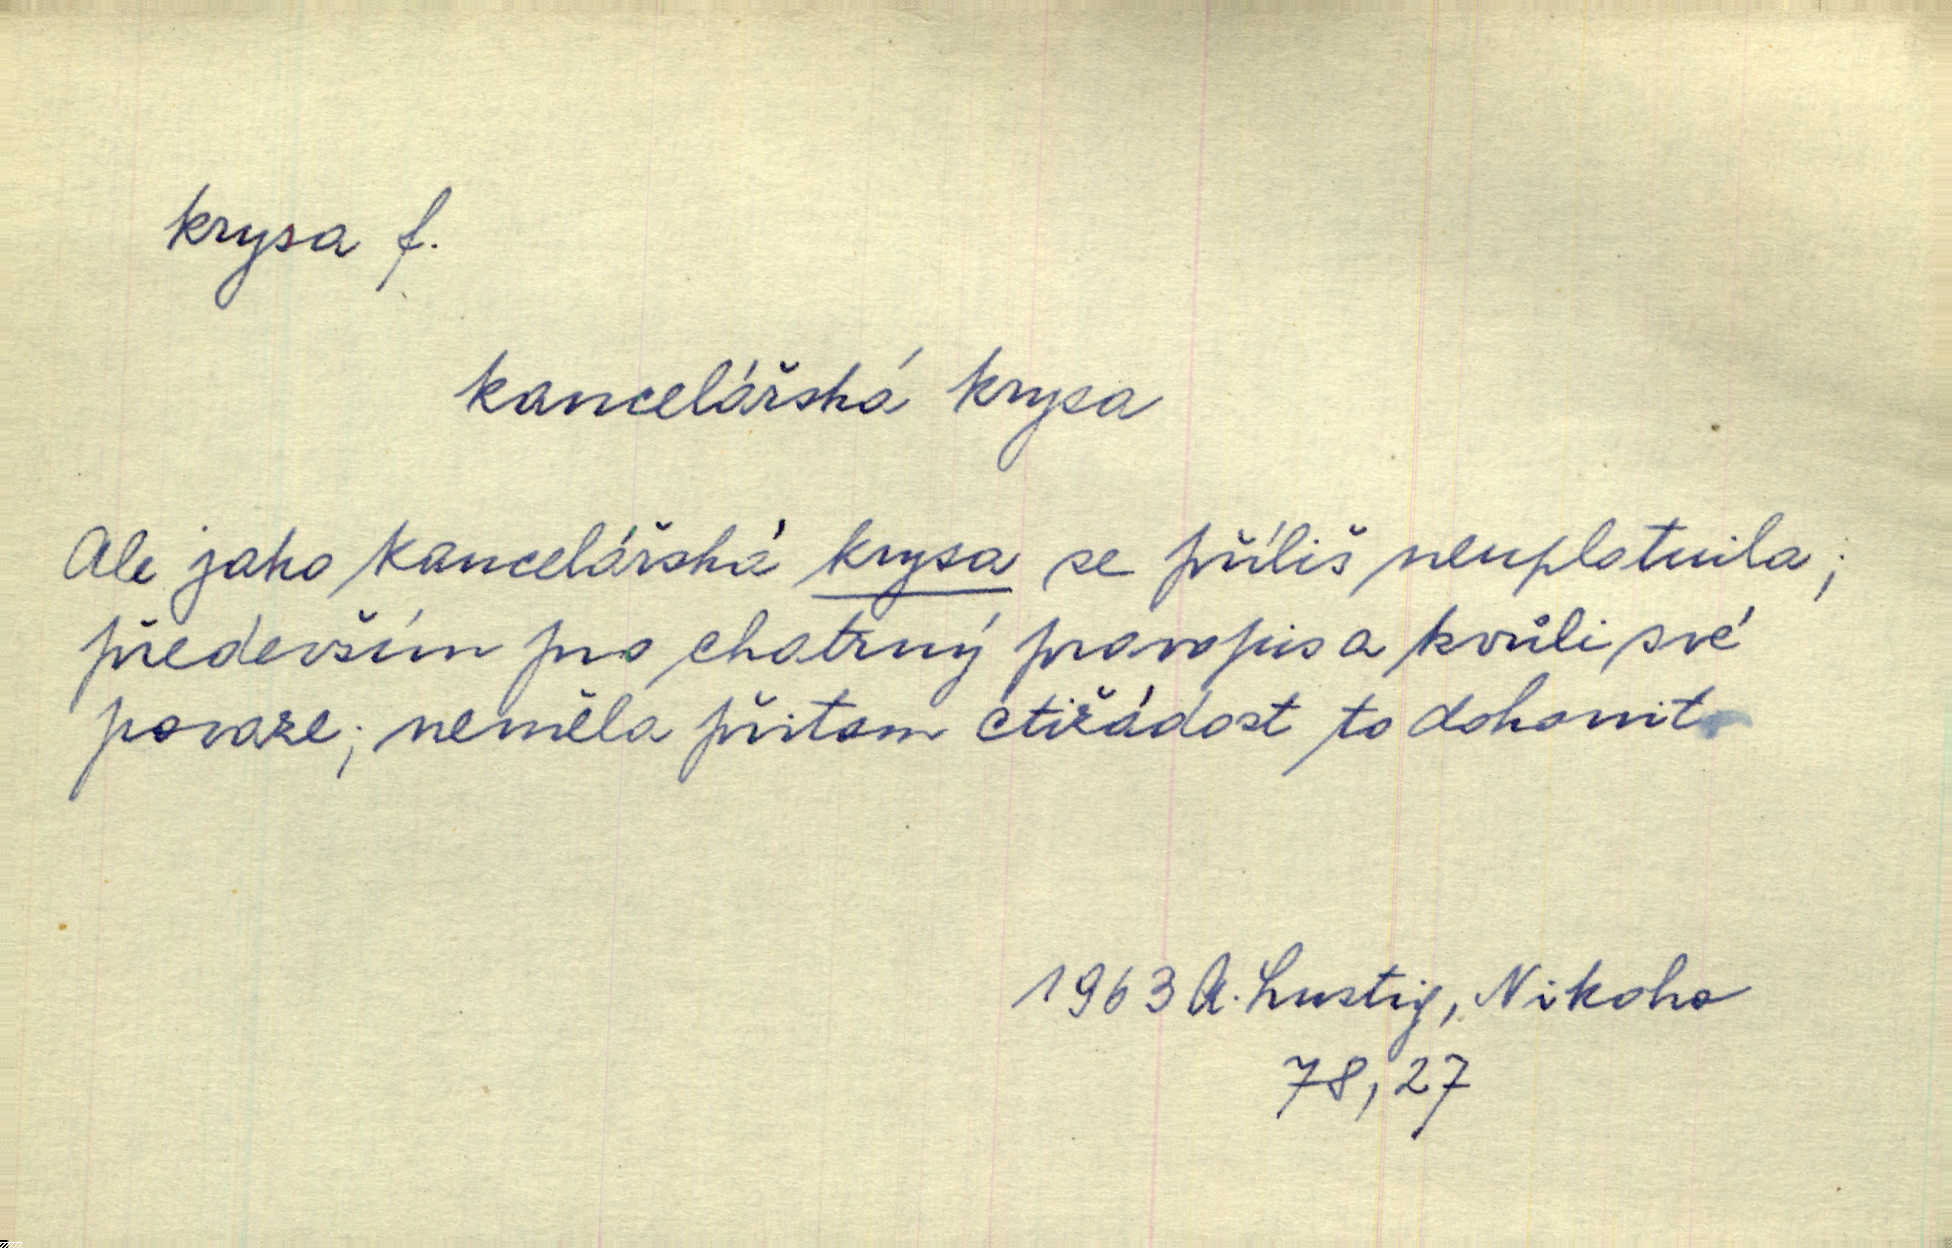 krysa f.
kancelářská krysa
Ale jako kancelářská krysa se příliš neuplatnila;
především pro chatrný pravopis a kvůli své
povaze; neměla přitom ctižádost to dohonit.
1963 A. Lustig, Nikoho
78,27